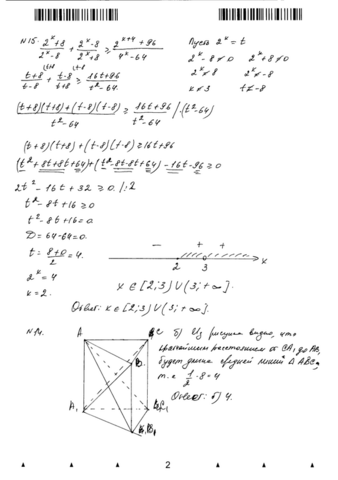 N15.
(2ˣ+8)/(2ˣ-8) + (2ˣ-8)/(2ˣ+8) ≥ (2ˣ⁺⁴+96)/(4ˣ-64)
Пусть 2ˣ=t
2ˣ-8≠0 2ˣ+8≠0
2ˣ≠8 2ˣ≠-8
x≠3 t≠-8
(t+8)/(t-8) + (t-8)/(t+8) ≥ (16t+96)/(t²-64)
((t+8)(t+8)+(t-8)(t-8))/(t²-64) ≥ (16t+96)/(t²-64) /·(t²-64)
(t+8)(t+8)+(t-8)(t-8)≥16t+96
(t²+8t+8t+64)+(t²-8t-8t+64)-16t-96≥0
2t²-16t+32≥0 /:2
t²-8t+16≥0
t²-8t+16=0
D=64-64=0.
t=(8+0)/2=4.
2ˣ=4
x=2.
- + +
2 3 x
x∈[2;3)∪(3;+∞].
Ответ: x∈[2;3)∪(3;+∞].
N14.
A
A₁
б) Из рисунка видно, что
расстоянием от CA₁ до AB₁
будет длина средней линии Δ ABC,
т.е 1/2·8=4
Ответ: б) 4.
2